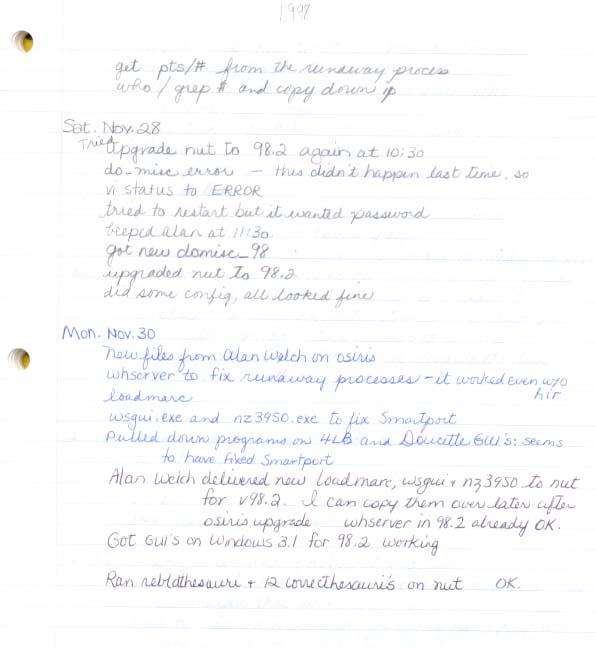 1998
get pts/# from the runaway process
who / grep # and copy down ip
Sat. Nov. 28
Tried
upgrade nut to 98.2 again at 10:30
do_misc error - this didn't happen last time, so
vi status to ERROR
tried to restart but it wanted password
beeped Alan at 11:30
got new domisc_98
upgraded nut to 98.2
did some config, all looked fine
Mon. Nov. 30
New files from Alan Welch on osiris
whserver to fix runaway processes - it worked even w/o
hir
loadmarc
wsgui.exe and nz3950.exe to fix Smartport
Pulled down programs on 4LB and Doucette GUI's: seems
to have fixed Smartport
Alan Welch delivered new loadmarc, wsgui + nz3950 to nut
for v98.2. I can copy them over later after
osiris upgrade whserver in 98.2 already OK.
Got GUI's on Windows 3.1 for 98.2 working
Ran rebldthesauri + 12 correcthesauri's on nut OK.